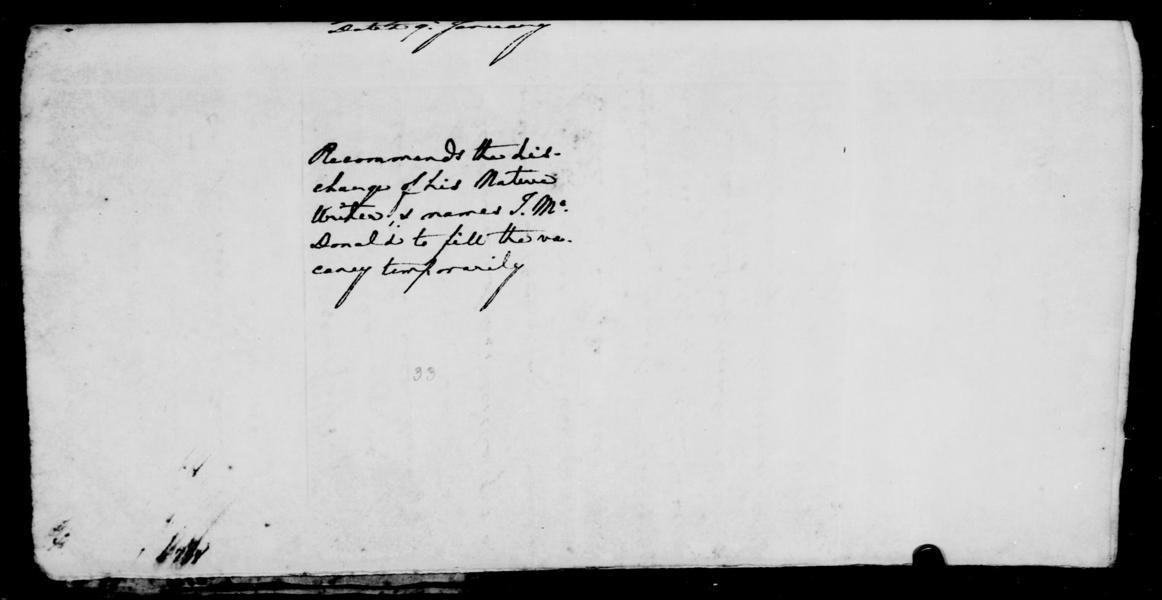 Dated 9. January
Recommends the dis-
charge of his Native
Writer, & names J. Mc.
Donald to fill the va-
cancy temporarily
33